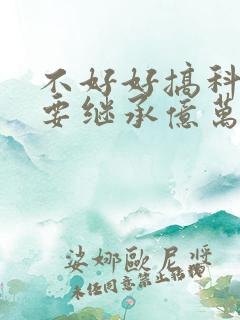 不好好搞科
要继承億萬
娑娜歐尼醬
未经同意禁止转载